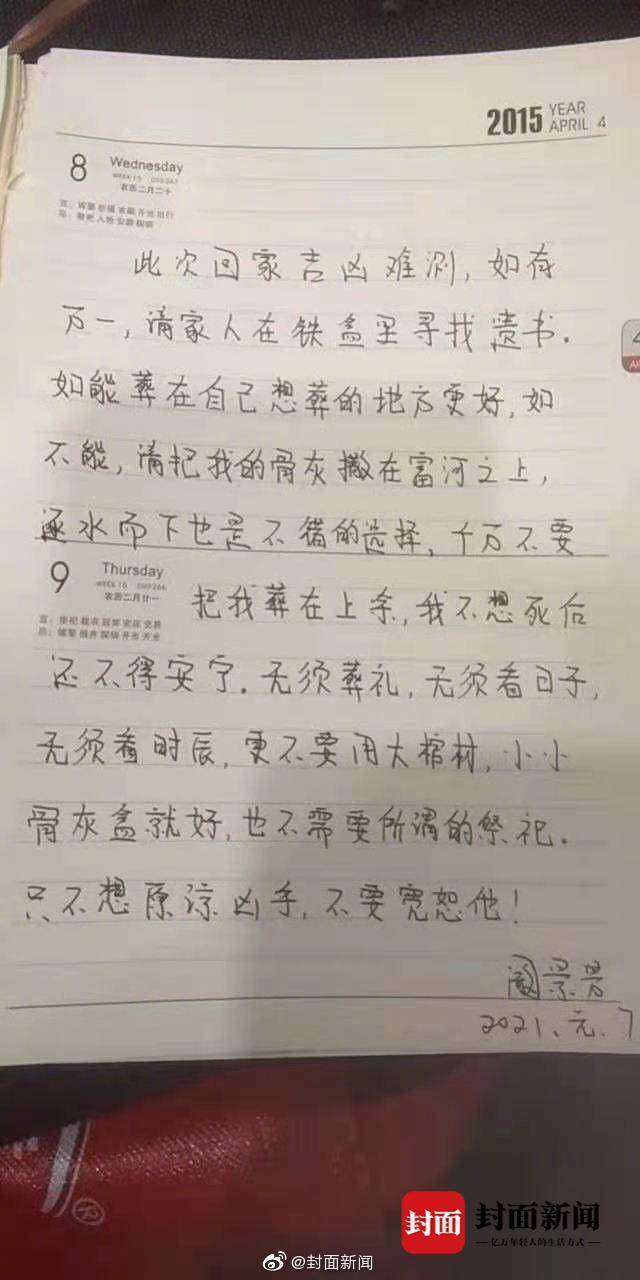 2015 YEAR
APRIL 4
8 Wednesday
农历二月二十
此次回家吉凶难测，如有
万一，请家人在铁盒里寻找遗书.
如能葬在自己想葬的地方更好，如
不能，请把我的骨灰撒在富河之上，
逐水而下也是不错的选择，千万不要
9 Thursday
农历二月廿一
把我葬在上余，我不想死后
还不得安宁.无须葬礼，无须看日子，
无须看时辰，更不要用大棺材，小小
骨灰盒就好，也不需要所谓的祭祀.
只不想原谅凶手，不要宽恕他！
阚景芳
2021.元.7
封面 封面新闻
—亿万年轻人的生活方式—
@封面新闻